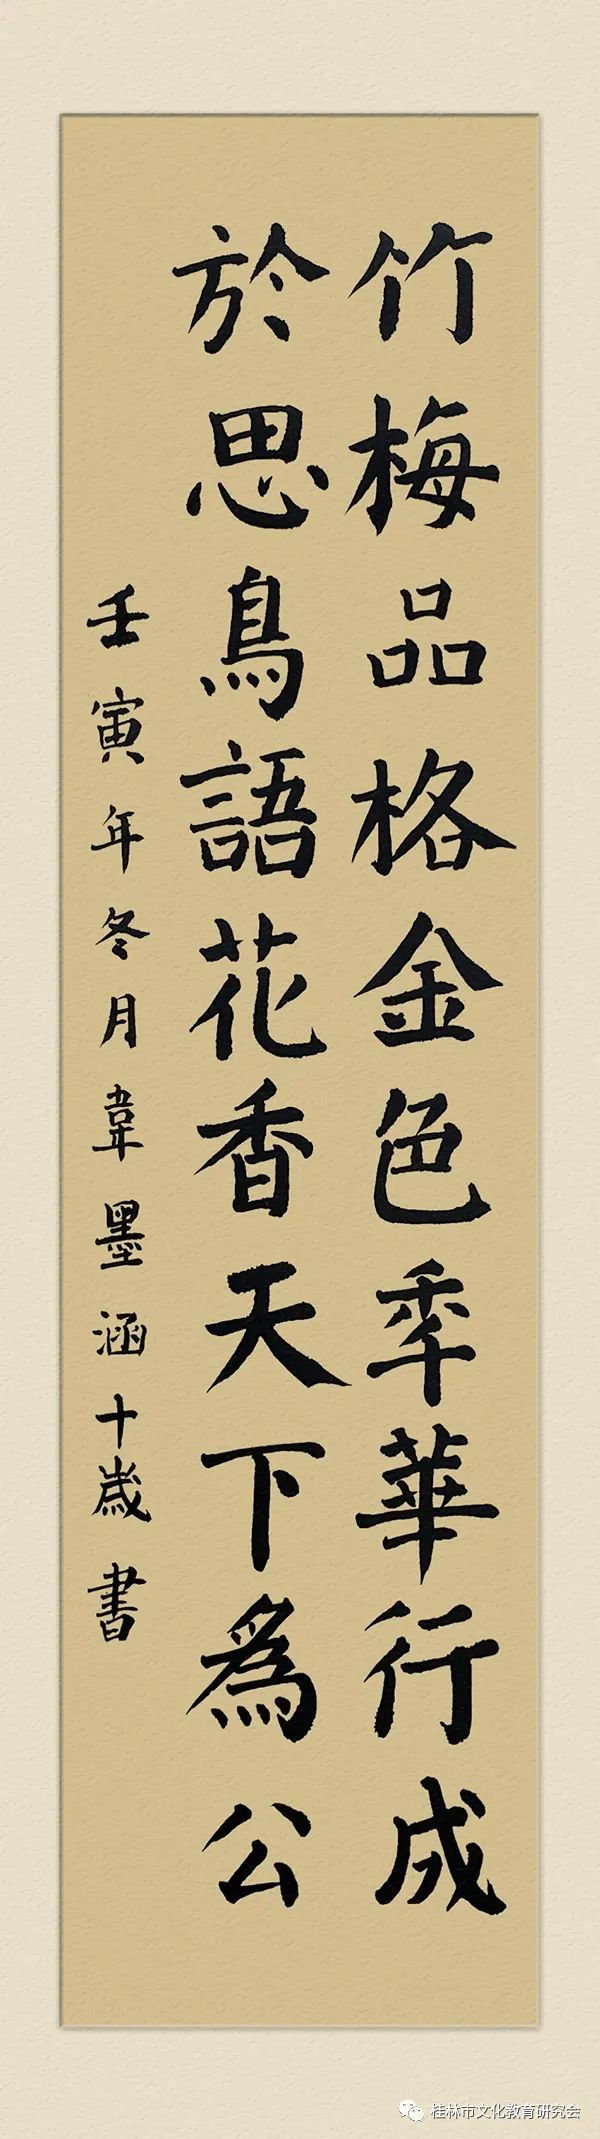 竹梅品格金色秊華行成
於思鳥語花香天下爲公
壬寅年冬月韋墨涵十歲書
桂林市文化教育研究会